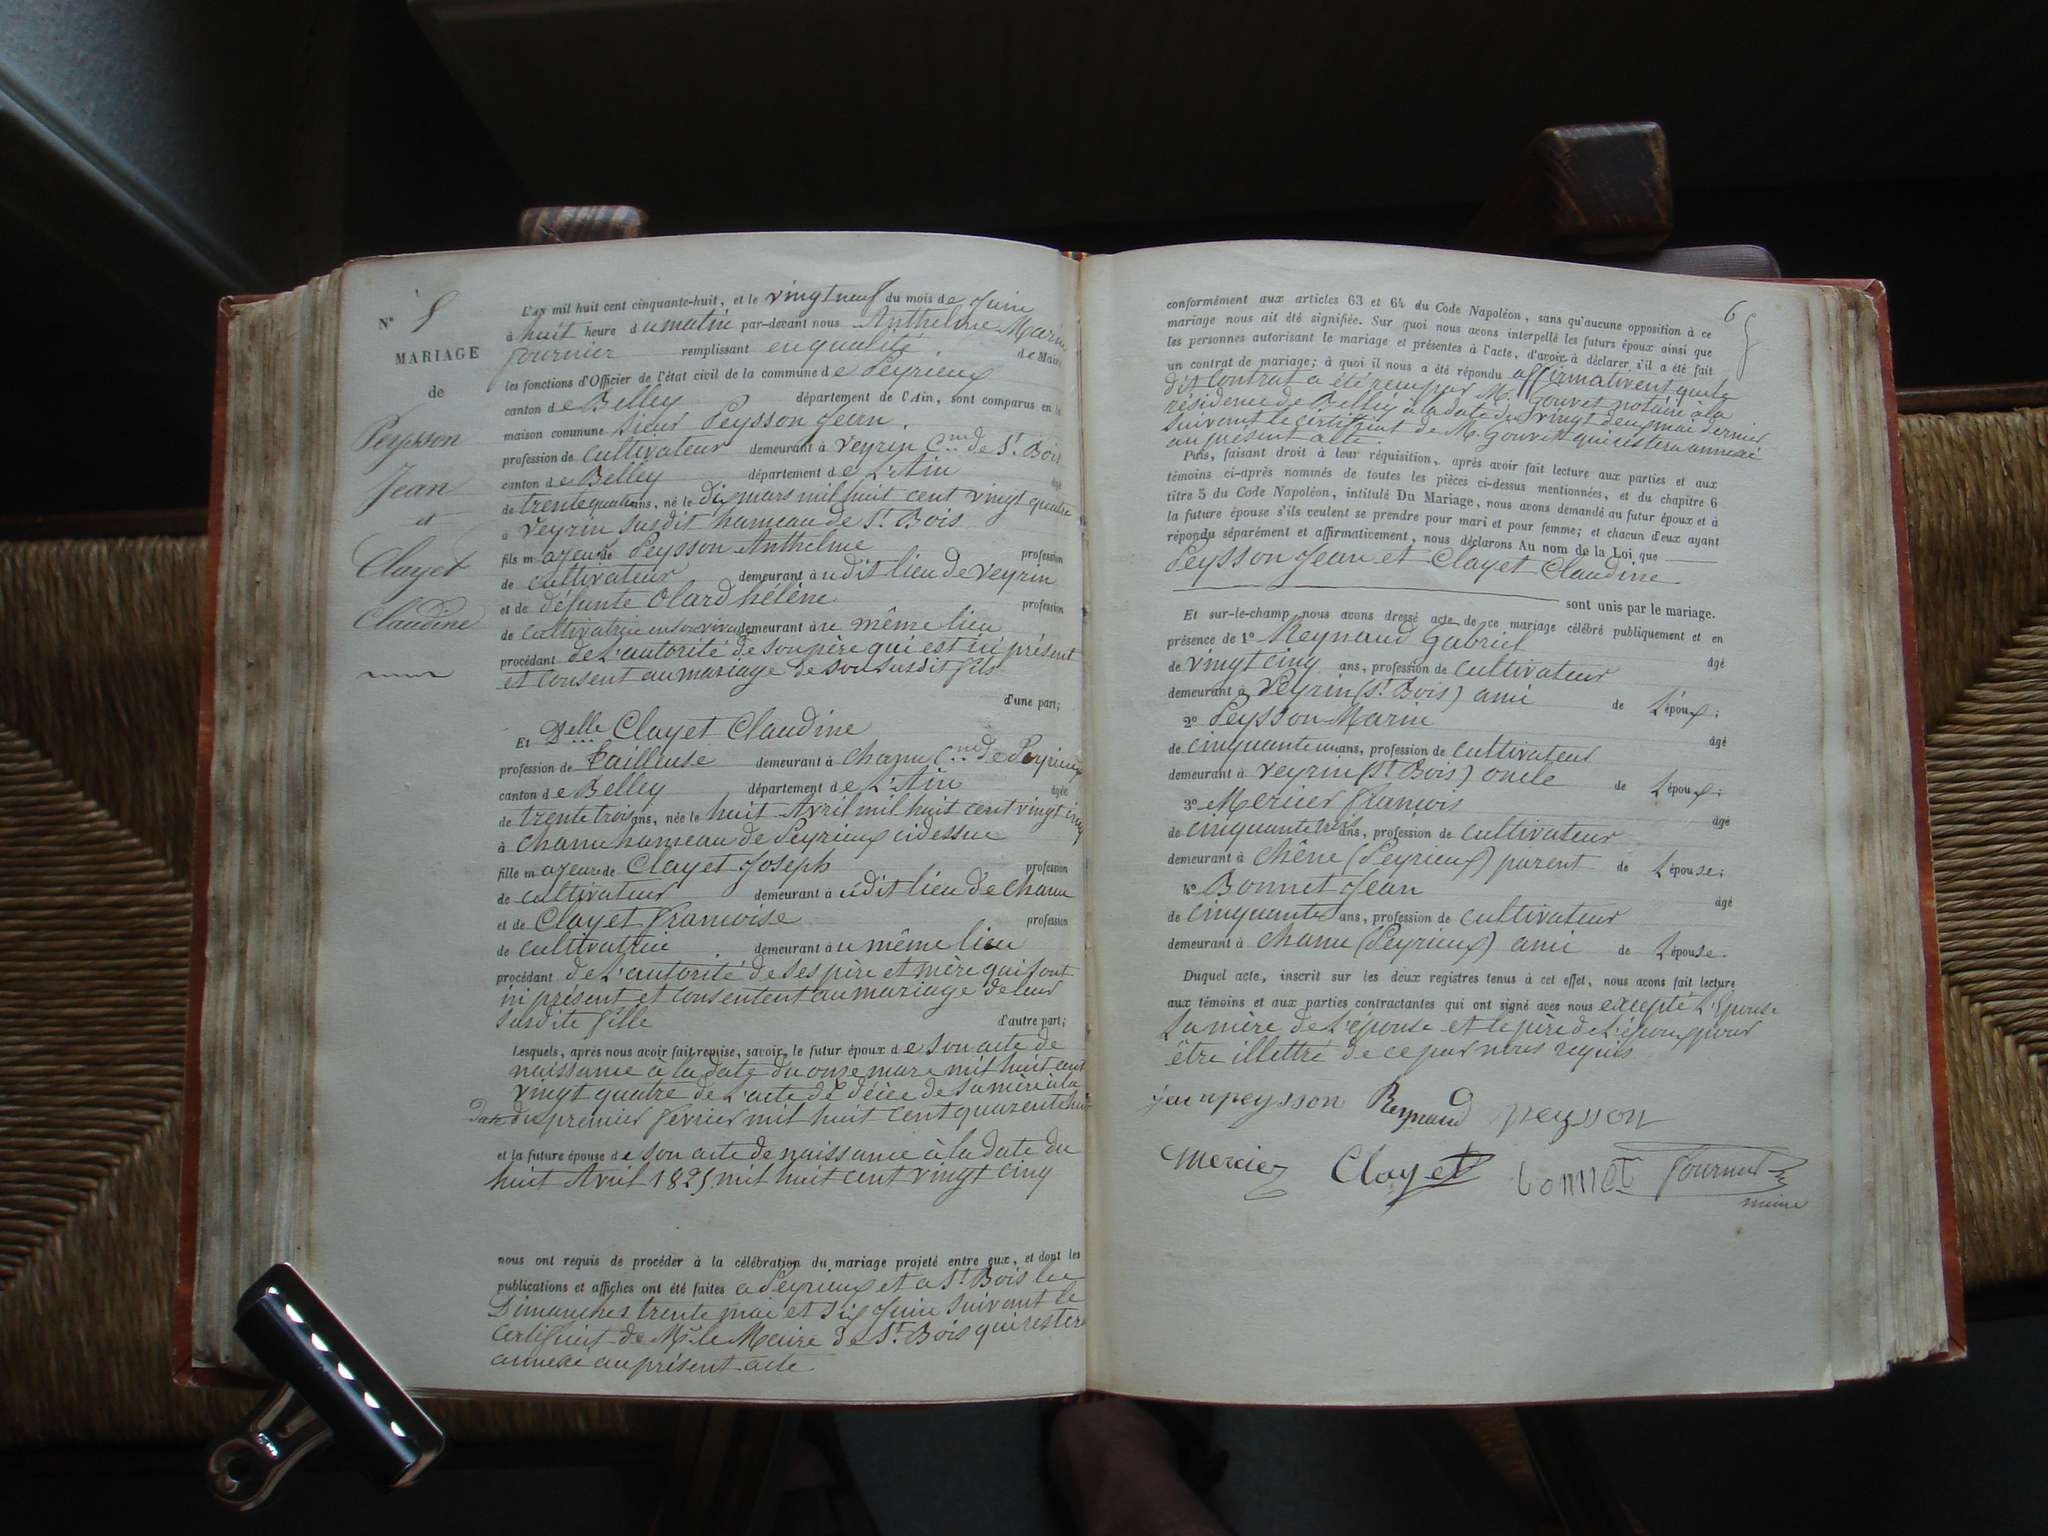 N° 5
MARIAGE
de
Peysson
Jean
et
Clayet
Claudine
L'AN mil huit cent cinquante-huit, et le vingt neuf du mois de Juin
à huit heure du matin par-devant nous Anthelme Marin
fournier remplissant en qualité de Maire
les fonctions d'Officier de l'état civil de la commune de Peyrieux
canton de Belley département de l'Ain, sont comparus en la
maison commune sieur Peysson Jean
profession de cultivateur demeurant à Veyrin Cne de St Bois
canton de Belley département de L'Ain âgé
de trente quatre ans, né le dix mars mil huit cent vingt quatre
à Veyrin susdit hameau de St Bois
fils majeur de Peysson Anthelme profession
de cultivateur demeurant à udit lieu de Veyrin
et de défunte Olard hélène profession
de cultivatrice en son vivant demeurant à u même lieu
procédant de L'autorité de son père qui est ici présent
et consent au mariage de son susdit fils
d'une part;
Et Delle Clayet Claudine
profession de tailleuse demeurant à Chanu Cne de Peyrieux
canton de Belley département de L'Ain âgée
de trente trois ans, née le huit Avril mil huit cent vingt cinq
à Chanu hameau de Peyrieux cidessus
fille majeure de Clayet Joseph profession
de cultivateur demeurant à udit lieu de Chanu
et de Clayet francoise profession
de cultivatrice demeurant à u même lieu
procédant de L'autorité de ses père et mère qui sont
ici présent et consentent au mariage de leur
susdite fille d'autre part;
Lesquels, après nous avoir fait remise, savoir, le futur époux de son acte de
naissance à la date du onze mars mil huit cent
vingt quatre de L'acte de décès de sa mère à la
date du premier février mil huit cent quarente huit
et la future épouse de son acte de naissance à la date du
huit Avril 1825 mil huit cent vingt cinq
nous ont requis de procéder à la célébration du mariage projeté entre eux, et dont les
publications et affiches ont été faites a Peyrieux et a St Bois les
Dimanches trente mai et six Juin suivant le
certificat de Mr le Maire de St Bois qui restera
annexé au présent acte
6
conformément aux articles 63 et 64 du Code Napoléon, sans qu'aucune opposition à ce
mariage nous ait été signifiée. Sur quoi nous avons interpellé les futurs époux ainsi que
les personnes autorisant le mariage et présentes à l'acte, d'avoir à déclarer s'il a été fait
un contrat de mariage; à quoi il nous a été répondu affirmativent que le
dit Contrat a été reçu par M. Gouvet notaire à la
résidence de Belley à la date du vingt deux mai dernier
suivant le certificat de M. Gouvet qui restera annexé
au présent acte.
Puis, faisant droit à leur réquisition, après avoir fait lecture aux parties et aux
témoins ci-après nommés de toutes les pièces ci-dessus mentionnées, et du chapitre 6
titre 5 du Code Napoléon, intitulé Du Mariage, nous avons demandé au futur époux et à
la future épouse s'ils veulent se prendre pour mari et pour femme; et chacun d'eux ayant
répondu séparément et affirmaticement, nous déclarons Au nom de la Loi que
Peysson Jean et Clayet Claudine
sont unis par le mariage.
Et sur-le-champ nous avons dressé acte de ce mariage célébré publiquement et en
présence de 1° Reynaud Gabriel âgé
de vingt cinq ans, profession de cultivateur
demeurant à Veyrin (St Bois) ami de L'époux;
2° Peysson Marin âgé
de cinquante un ans, profession de cultivateur
demeurant à Veyrin (St Bois) oncle de L'époux;
3° Mercier francois âgé
de cinquante trois ans, profession de cultivateur
demeurant à chêne (Peyrieux) parent de L'épouse;
4° Bonnet Jean âgé
de cinquante ans, profession de cultivateur
demeurant à Chanu (Peyrieux) ami de L'épouse.
Duquel acte, inscrit sur les deux registres tenus à cet effet, nous avons fait lecture
aux témoins et aux parties contractantes qui ont signé avec nous excepté L'épouse
La mère de L'épouse et le père de L'époux pour
être illettré de ce par nous requis
jeanpeysson Reynaud peysson
mercier Clayet bonnet fournier
maire